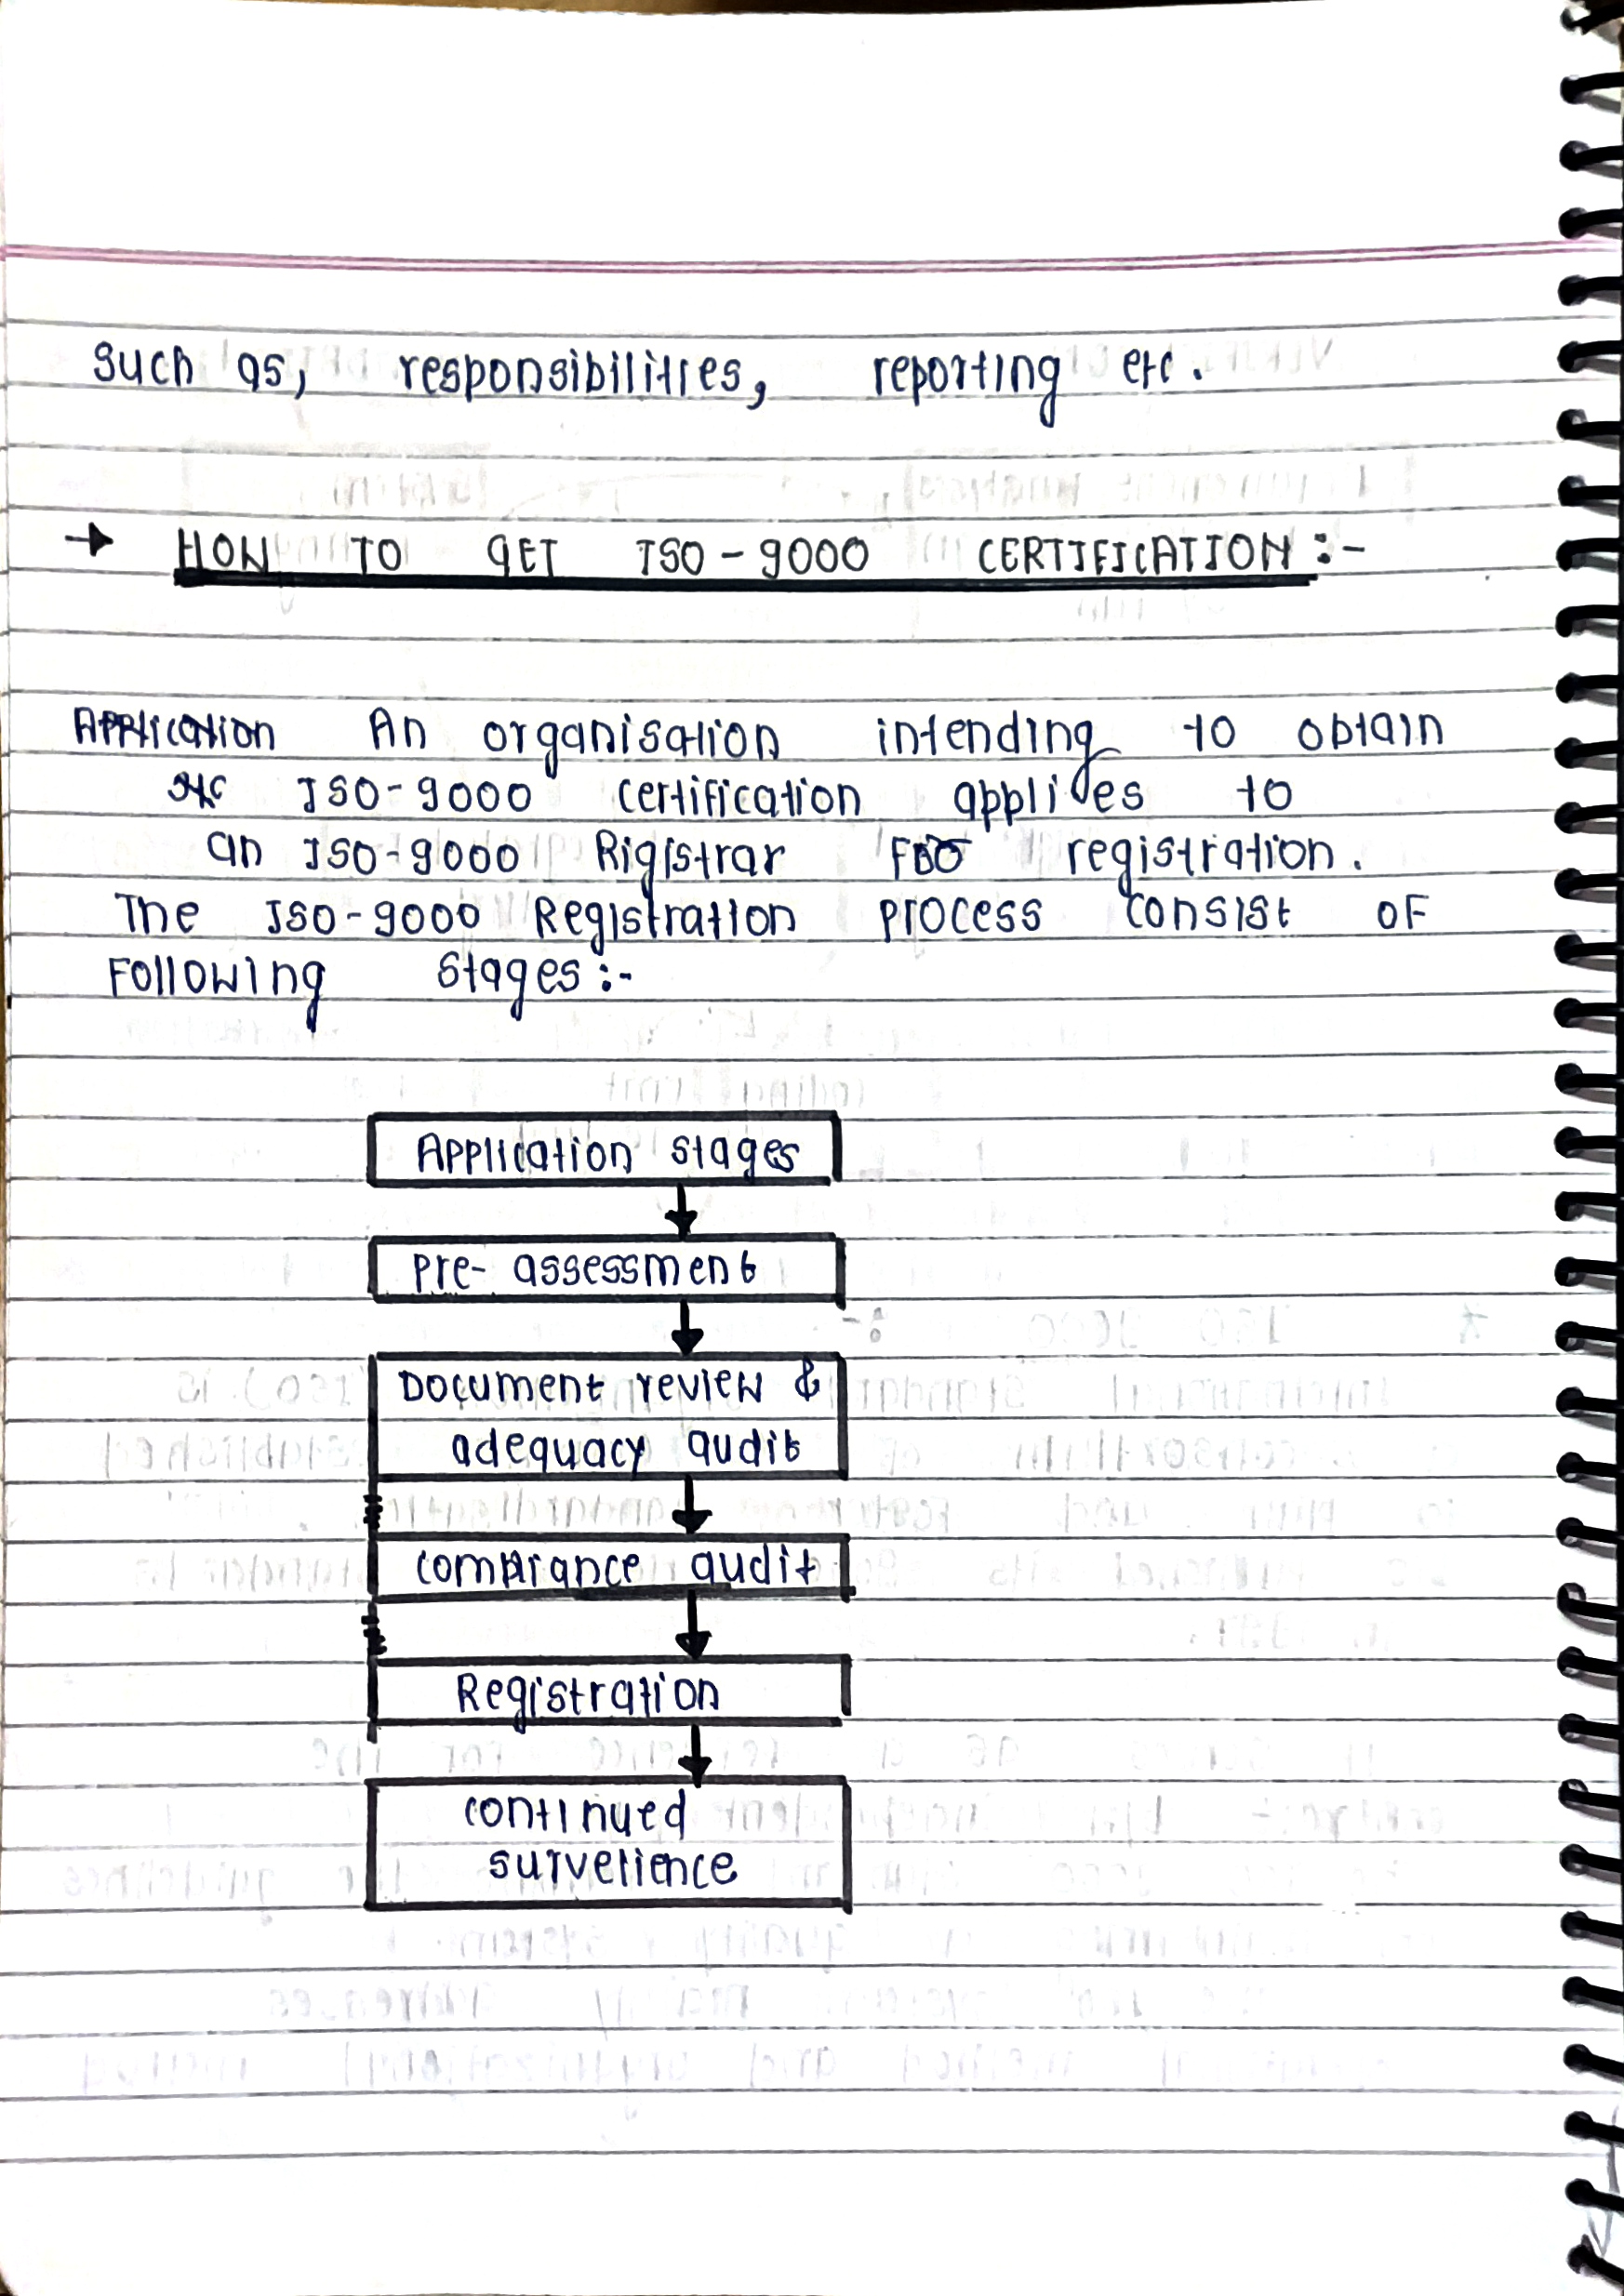 such as, responsibilities, reporting etc.
→ HOW TO GET ISO-9000 CERTIFICATION :-
Application An organisation intending to obtain
ISO-9000 certification applies to
an ISO-9000 Rigistrar For registration.
The ISO-9000 Registration process consist of
Following stages :-
Application stages
pre- assessment
Document review &
adequacy audit
compliance audit
Registration
continued
surveilence